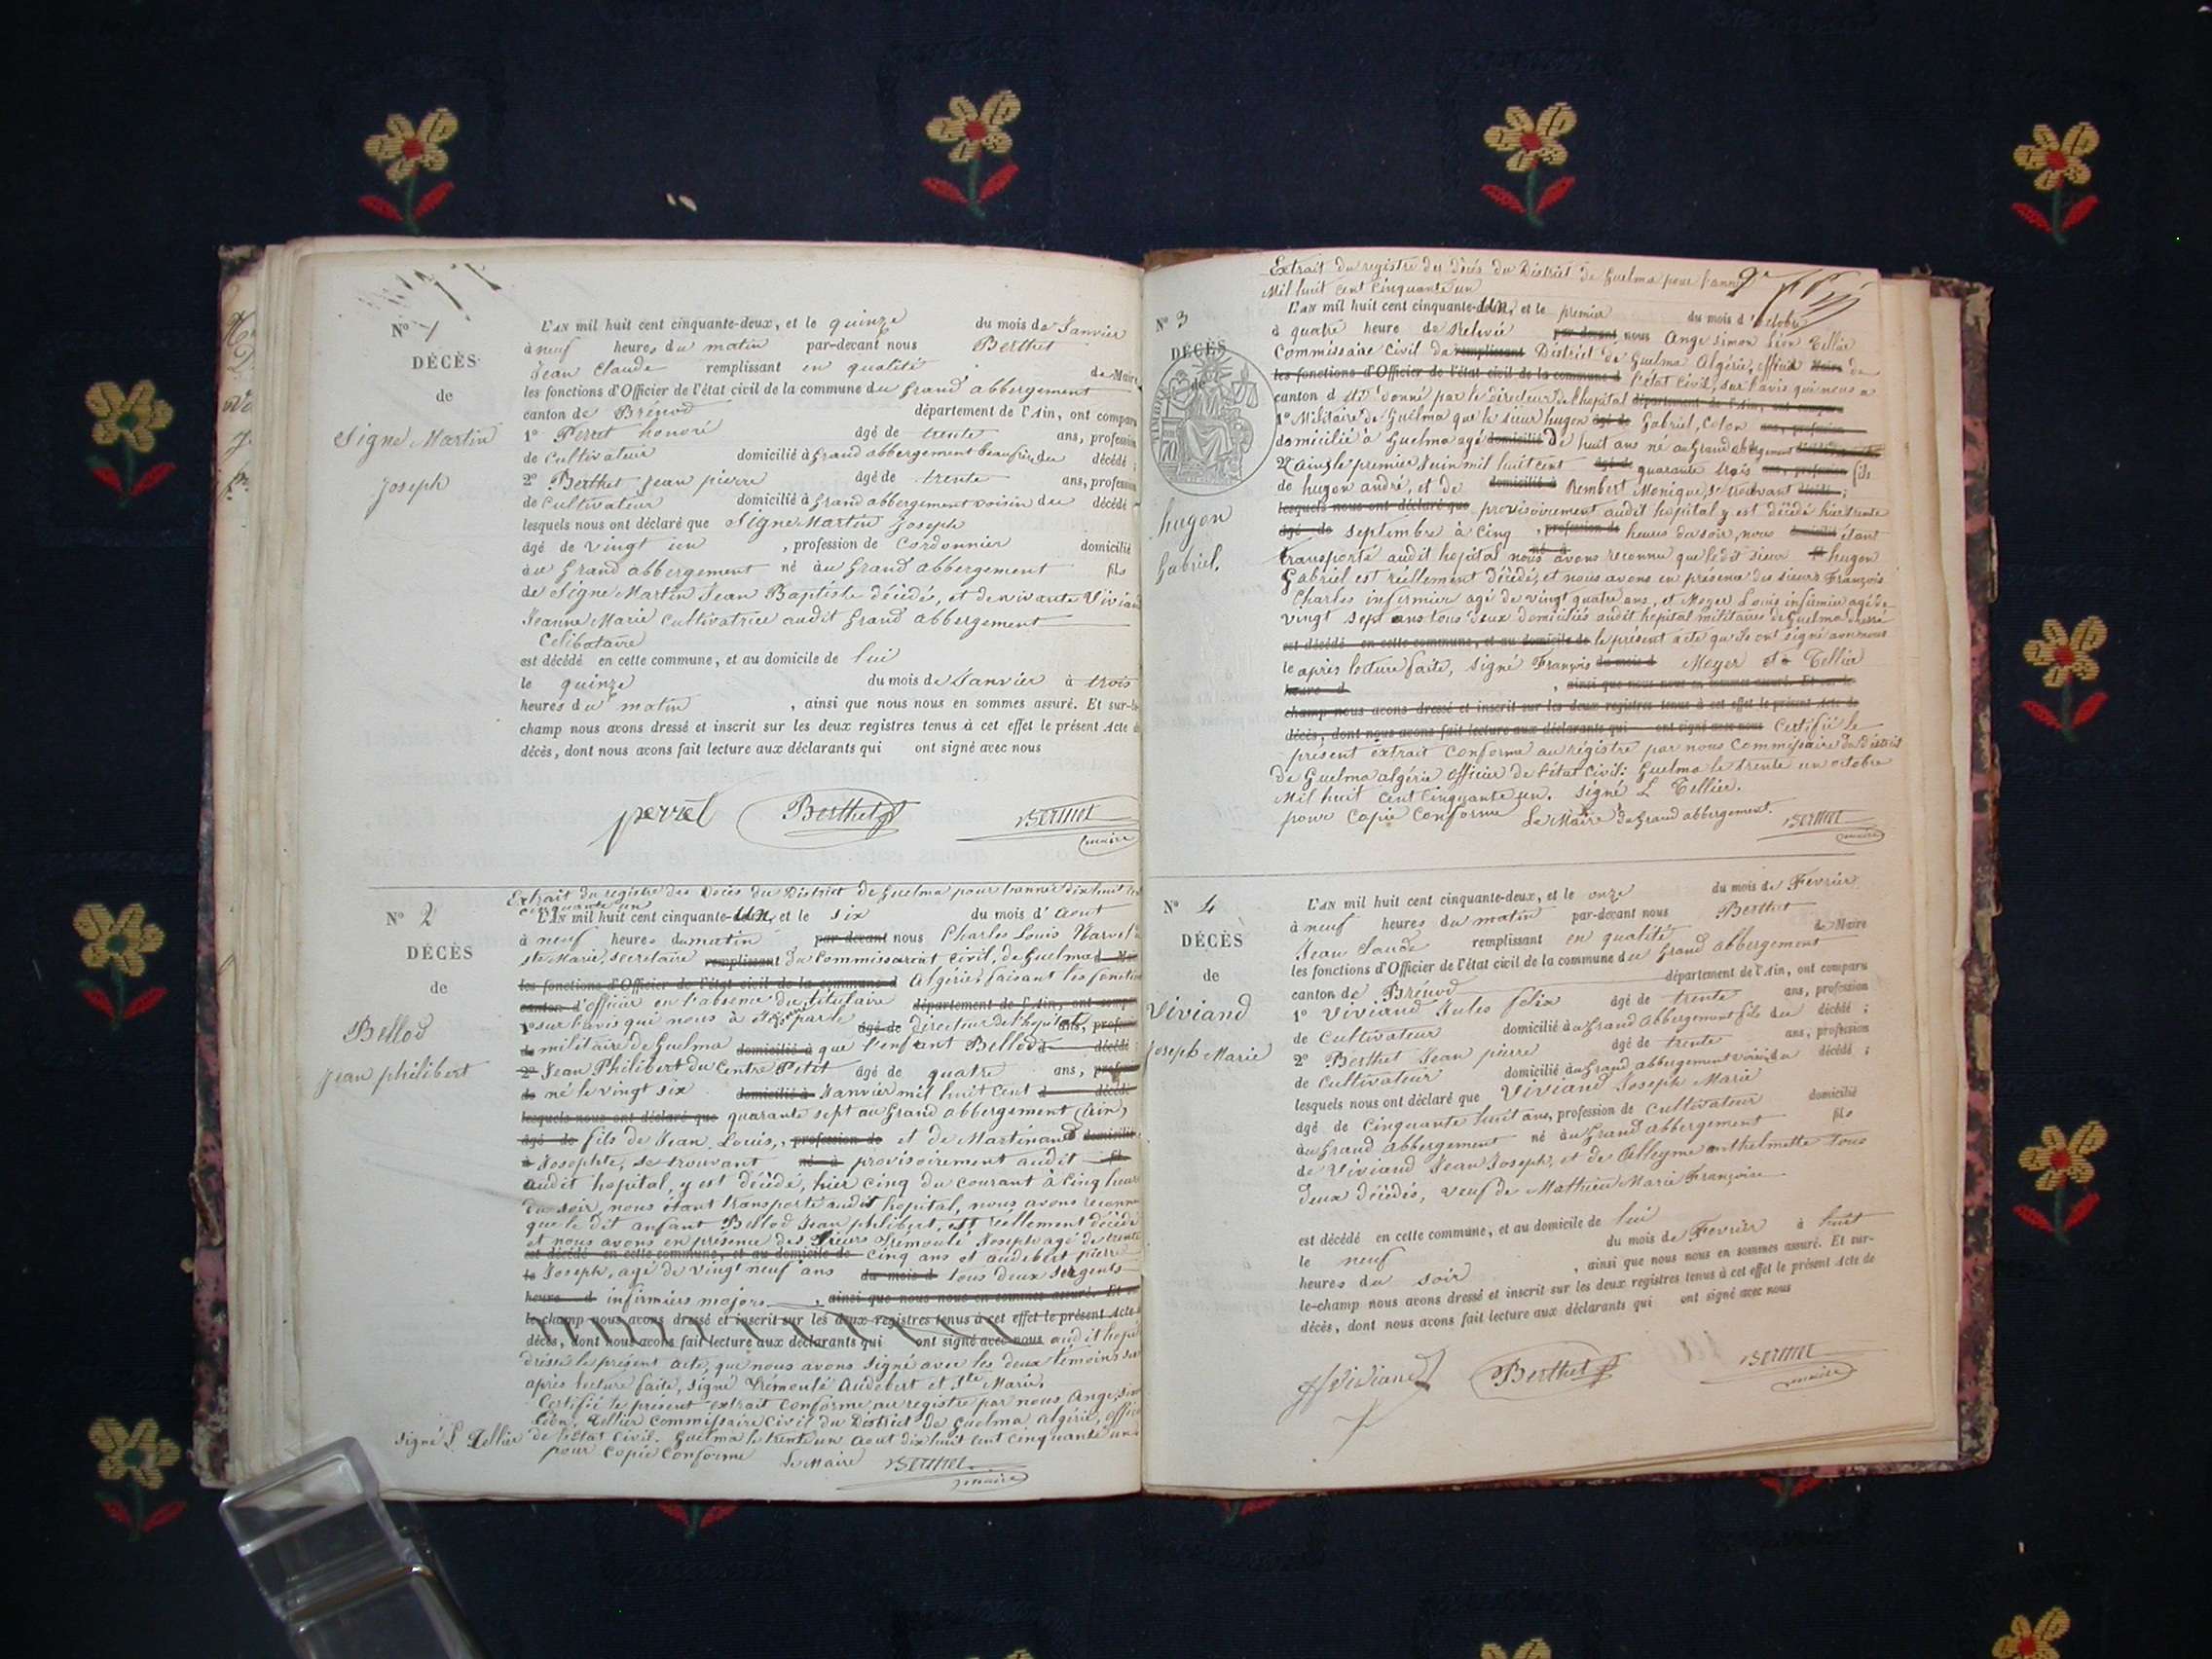 N° 1
DÉCÈS
de
Signe Martin
Joseph
L'AN mil huit cent cinquante-deux, et le quinze du mois de Janvier
à neuf heures du matin par-devant nous Berthet
Jean Claude remplissant en qualité de Maire
les fonctions d'Officier de l'état civil de la commune du Grand abbergement
canton de Brénod département de l'Ain, ont comparu
1° Perret honoré âgé de trente ans, profession
de Cultivateur domicilié à Grand abbergement beaufrère du décédé ;
2° Berthet jean pierre âgé de trente ans, profession
de Cultivateur domicilié à Grand abbergement voisin du décédé
lesquels nous ont déclaré que Signe Martin Joseph
âgé de vingt un , profession de Cordonnier domicilié
au Grand abbergement né au Grand abbergement fils
de Signe Martin Jean Baptiste décédé, et de vivante Viviand
Jeanne Marie Cultivatrice audit Grand abbergement
Celibataire
est décédé en cette commune, et au domicile de lui
le quinze du mois de Janvier à trois
heures du matin , ainsi que nous nous en sommes assuré. Et sur-le-
champ nous avons dressé et inscrit sur les deux registres tenus à cet effet le présent Acte de
décès, dont nous avons fait lecture aux déclarants qui ont signé avec nous
perret Berthet Berthet
maire
N° 2
DÉCÈS
de
Bellod
Jean philibert
Extrait du registre des Décès du District de Guelma pour l'année dix huit cent
cinquante un
L'AN mil huit cent cinquante-un, et le six du mois d'Aout
à neuf heures du matin par-devant nous Charles Louis
Ste Marie, secrétaire remplissant du Commissariat Civil, de Guelma
les fonctions d'Officier de l'état civil de la commune d Algérie, faisant les fonctions
canton d'officier en l'absence du titulaire département de l'Ain, ont comparu
1° sur l'avis qui nous à été donné par le âgé de directeur de l'hopital ans, profession
de militaire de Guelma domicilié à que l'enfant Bellod décédé
2° Jean Philibert du Centre Petit âgé de quatre ans,
de né le vingt six domicilié à Janvier mil huit Cent décédé
lesquels nous ont déclaré que quarante sept au Grand abbergement (Ain)
âgé de fils de Jean Louis, profession de et de Martinand domicilié
à Josephte, se trouvant né à provisoirement audit fils
audit hopital, y est décédé, hier cinq du courant à cinq heures
du soir, nous étant transporté audit hopital, nous avons reconnu
que le dit enfant Bellod Jean philibert, est réellement décédé
et nous avons en présence des Sieurs Trémoulé Joseph agé de trente
est décédé en cette commune, et au domicile de cinq ans et audebert pierre
le Joseph, agé de vingt neuf ans du mois d tous deux sergents
heure d infirmiers majors , ainsi que nous nous en sommes assuré. Et sur
le-champ nous avons dressé et inscrit sur les deux registres tenus à cet effet le présent Acte
décès, dont nous avons fait lecture aux déclarants qui ont signé avec nous audit hopital
dressé le présent acte, que nous avons signé avec les deux témoins
après lecture faite, signé Trémoulé Audebert et Ste Marie.
Certifié le présent extrait Conforme au registre par nous Ange, simon
Léon, Tellier Commissaire Civil du District de Guelma, algérie, officier
signé L. Tellier de l'état Civil. Guelma le trente un Aout dix huit cent cinquante un
pour Copie Conforme Le Maire Berthet
maire
N° 3
DÉCÈS
de
hugon
Gabriel.
Extrait du registre des décès du District de Guelma pour l'année
Mil huit cent Cinquante un
L'AN mil huit cent cinquante-un, et le premier du mois d'Octobre
à quatre heure de Relevée par-devant nous Ange simon Léon Tellier
Commissaire Civil du remplissant District de Guelma Algérie, officier Maire de
les fonctions d'Officier de l'état civil de la commune d l'état Civil, sur l'avis qui nous a
canton d été donné par le directeur de l'hopital département de l'Ain, ont comparu
1° Militaire de Guelma que le sieur hugon âgé de Gabriel, Colon ans, profession
domicilié à Guelma agé domicilié de huit ans né au Grand abbergement
2° ain, le premier Juin mil huit cent âgé de quarante trois ans, profession fils
de hugon andré, et de domicilié à Rembert Monique, se trouvant décédé ;
lesquels nous ont déclaré que provisoirement audit hopital y est décédé hier trente
âgé de septembre à cinq , profession de heures du soir, nous domicilié étant
transporté audit hopital nous avons reconnu que le dit sieur hugon
Gabriel est réellement décédé, et nous avons en présence des sieurs François
Charles infirmier agé de vingt quatre ans, et Meyer Louis infirmier agé de
vingt sept ans tous deux domiciliés audit hopital militaire de Guelma dressé
est décédé en cette commune, et au domicile de le présent acte qu'ils ont signé avec nous
le après lecture faite, signé François du mois d Meyer et Tellier
heure d , ainsi que nous nous en sommes assuré. Et sur-le-
champ nous avons dressé et inscrit sur les deux registres tenus à cet effet le présent Acte de
décès, dont nous avons fait lecture aux déclarants qui ont signé avec nous Certifié le
présent extrait conforme au régistre par nous Commissaire du district
de Guelma algérie officier de l'état Civil: Guelma le trente un octobre
Mil huit Cent Cinquante un. signé L Tellier.
pour Copie Conforme Le Maire du Grand abbergement. Berthet
maire
N° 4
DÉCÈS
de
Viviand
Joseph Marie
L'AN mil huit cent cinquante-deux, et le onze du mois de Fevrier
à neuf heures du matin par-devant nous Berthet
Jean Claude remplissant en qualité de Maire
les fonctions d'Officier de l'état civil de la commune du Grand abbergement
canton de Brénod département de l'Ain, ont comparu
1° Viviand Jules felix âgé de trente ans, profession
de Cultivateur domicilié au Grand Abbergement fils du décédé ;
2° Berthet Jean pierre âgé de trente ans, profession
de Cultivateur domicilié au Grand abbergement voisin du décédé ;
lesquels nous ont déclaré que Viviand Joseph Marie
âgé de Cinquante huit ans, profession de Cultivateur domicilié
au Grand Abbergement né au Grand abbergement fils
de Viviand Jean Joseph, et de Alleyme anthelmette tous
deux décédés, veuf de Mathieu Marie Françoise
est décédé en cette commune, et au domicile de lui
le neuf du mois de Fevrier à huit
heures du soir , ainsi que nous nous en sommes assuré. Et sur-
le-champ nous avons dressé et inscrit sur les deux registres tenus à cet effet le présent Acte de
décès, dont nous avons fait lecture aux déclarants qui ont signé avec nous
Viviand Berthet Berthet
maire